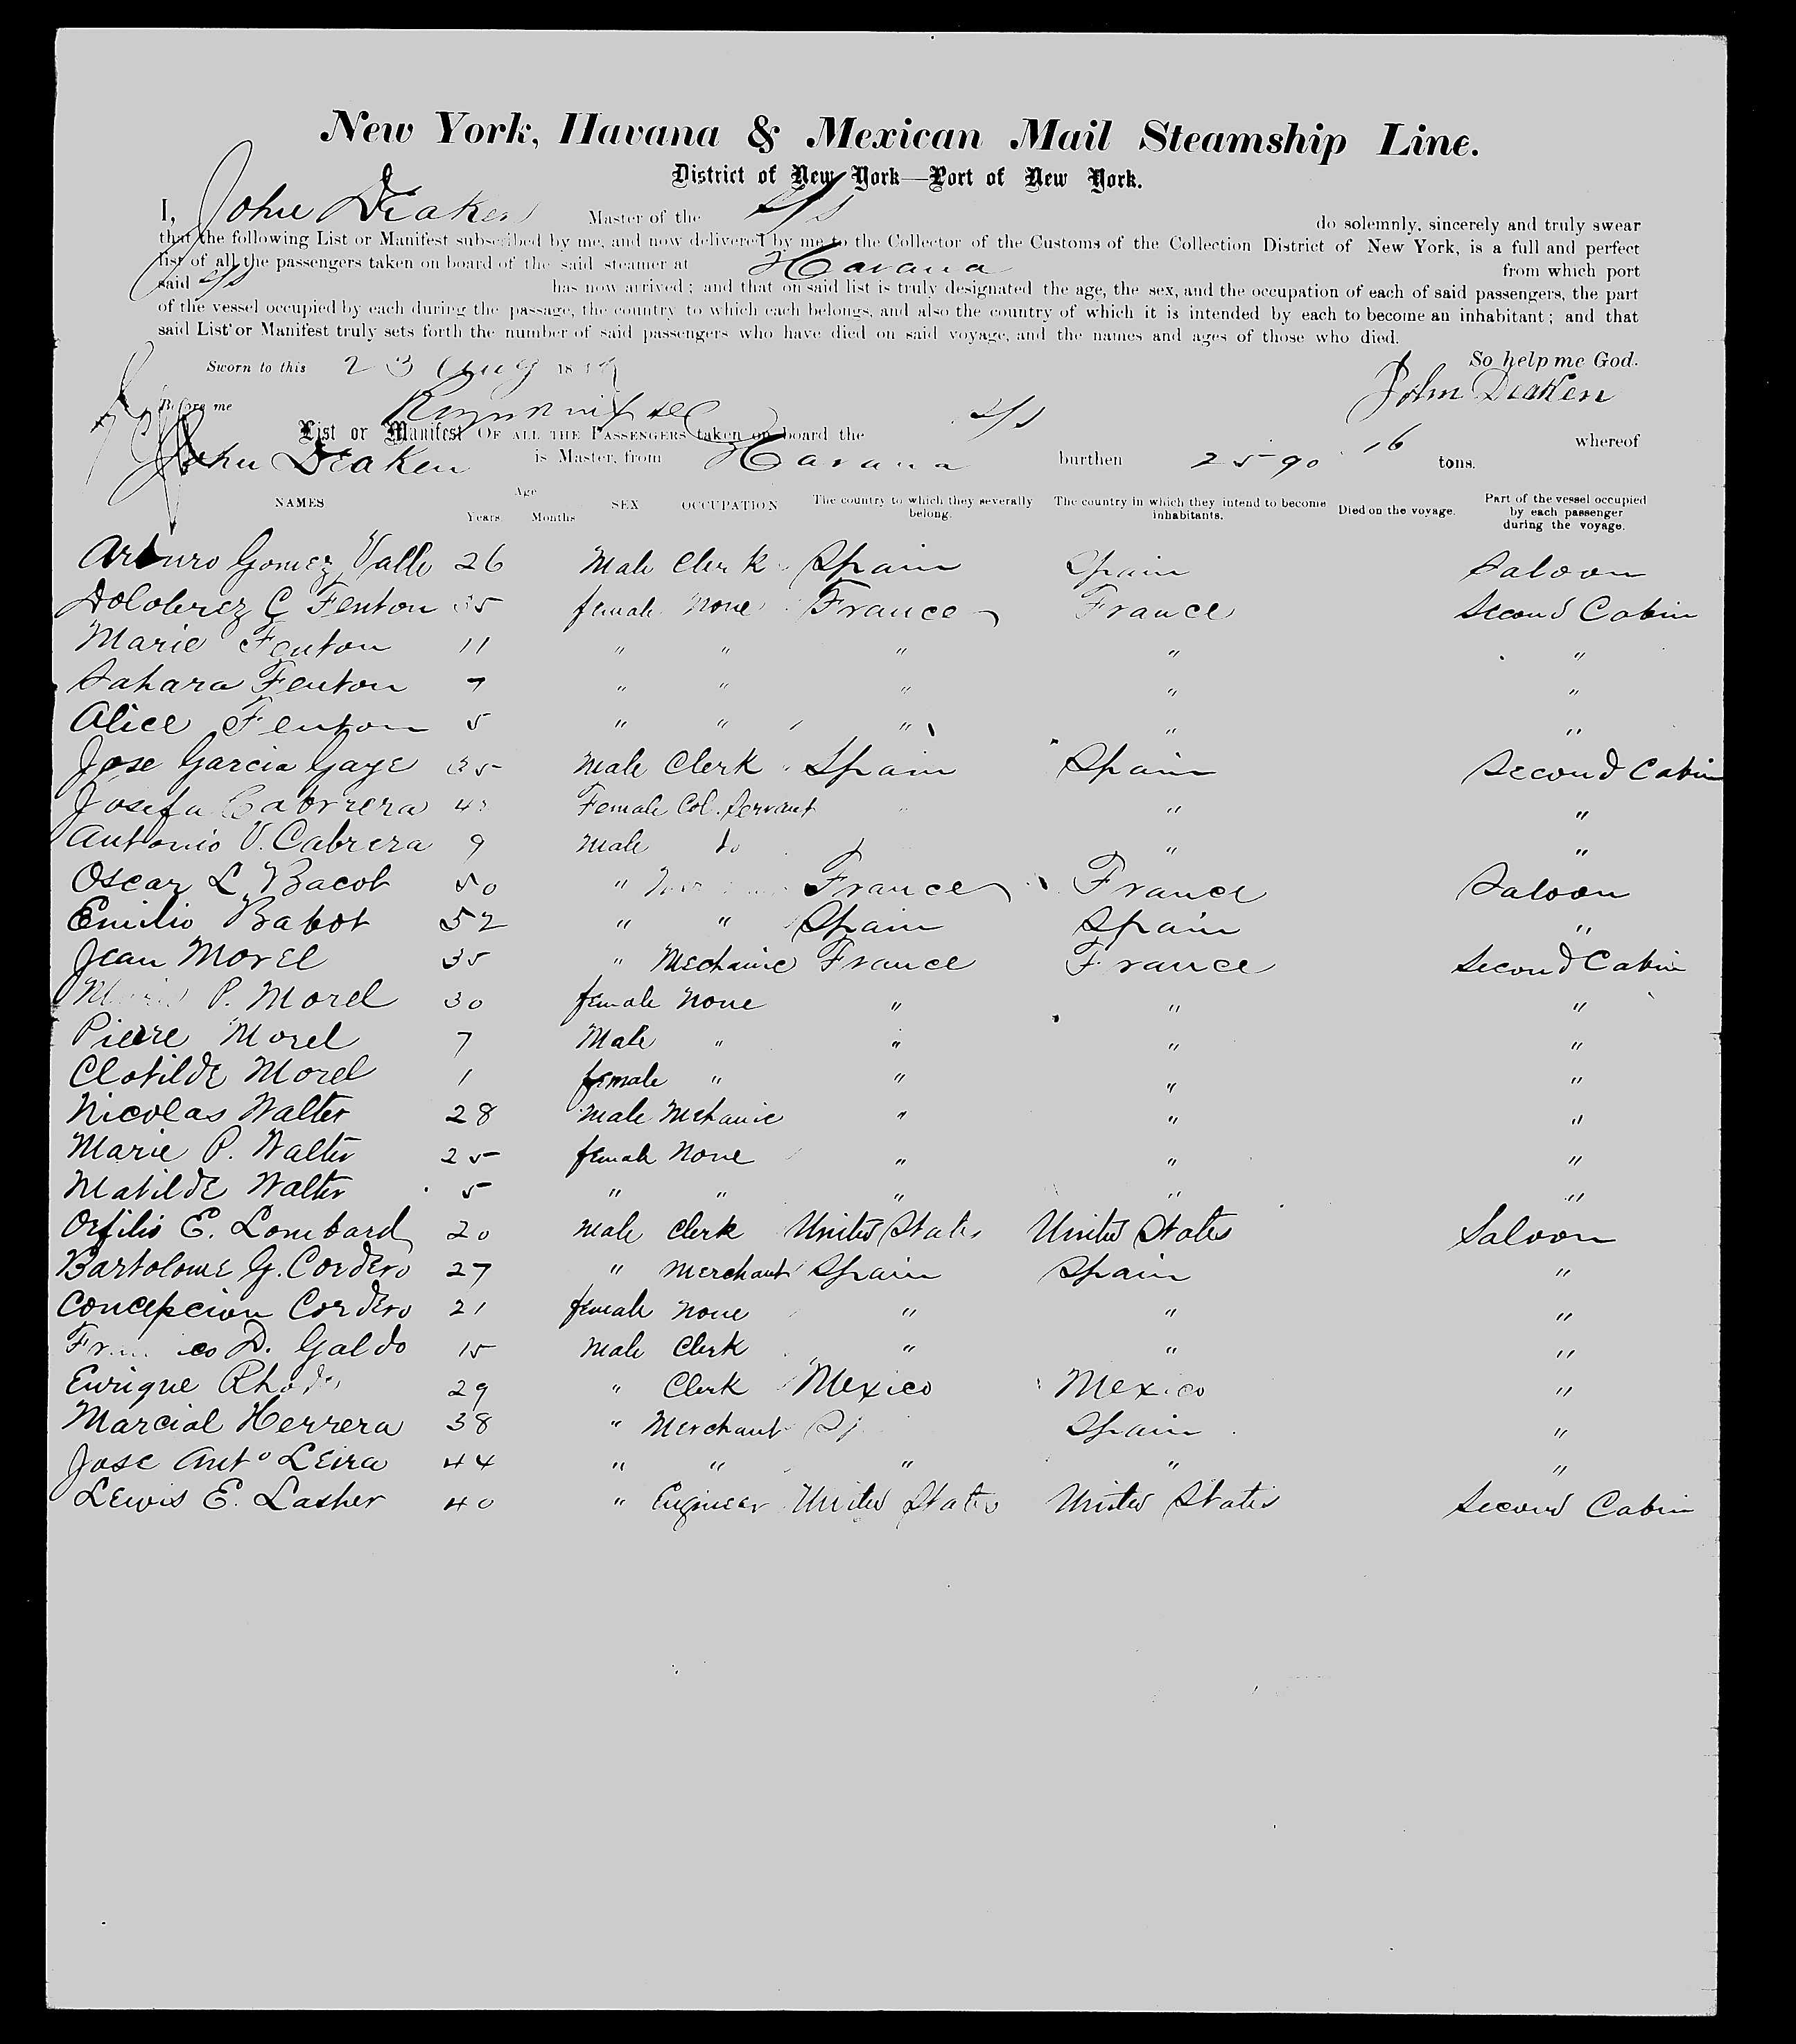 New York, Havana & Mexican Mail Steamship Line.
District of New York—Port of New York.
I, John Deaken Master of the S/S do solemnly, sincerely and truly swear
that the following List or Manifest subscribed by me, and now delivered by me to the Collector of the Customs of the Collection District of New York, is a full and perfect
list of all the passengers taken on board of the said steamer at Havana from which port
said S/S has now arrived; and that on said list is truly designated the age, the sex, and the occupation of each of said passengers, the part
of the vessel occupied by each during the passage, the country to which each belongs, and also the country of which it is intended by each to become an inhabitant; and that
said List or Manifest truly sets forth the number of said passengers who have died on said voyage, and the names and ages of those who died.
So help me God.
Sworn to this 23 Aug 18
John Deaken
Before me
List or Manifest OF ALL THE PASSENGERS taken on board the S/S whereof
John Deaken is Master, from Havana burthen 2590 16 tons.
NAMES Age Years Months SEX OCCUPATION The country to which they severally belong. The country in which they intend to become inhabitants. Died on the voyage. Part of the vessel occupied by each passenger during the voyage.
Arturo Gomez Valle 26 Male Clerk Spain Spain Saloon
Dolobrez C Fenton 35 female None France France Second Cabin
Marie Fenton 11 " " " " "
Sahara Fenton 7 " " " " "
Alice Fenton 5 " " " " "
Jose Garcia Gaye 35 Male Clerk Spain Spain Second Cabin
Josefa Cabrera Female Col. Servant " "
Antonio V. Cabrera 9 Male do " "
Oscar L Bacot 50 " France France Saloon
Emilio Babot 52 " " Spain Spain "
Jean Morel 35 " Mechanic France France Second Cabin
P. Morel 30 female None " " "
Pierre Morel 7 Male " " " "
Clotilde Morel 1 female " " " "
Nicolas Walter 28 Male Mehanic " " "
Marie P. Walter 25 female None " " "
Matilde Walter 5 " " " " "
Orfilio E. Lombard 20 Male Clerk United States United States Saloon
Bartolome G. Cordero 27 " Merchant Spain Spain "
Concepcion Cordero 21 female None " " "
D. Galdo 15 Male Clerk " " "
Enrique 29 " Clerk Mexico Mexico "
Marcial Herrera 38 " Merchant Spain "
Jose Anto Leira 44 " " " " "
Lewis E. Lasher 40 " Engineer United States United States Second Cabin